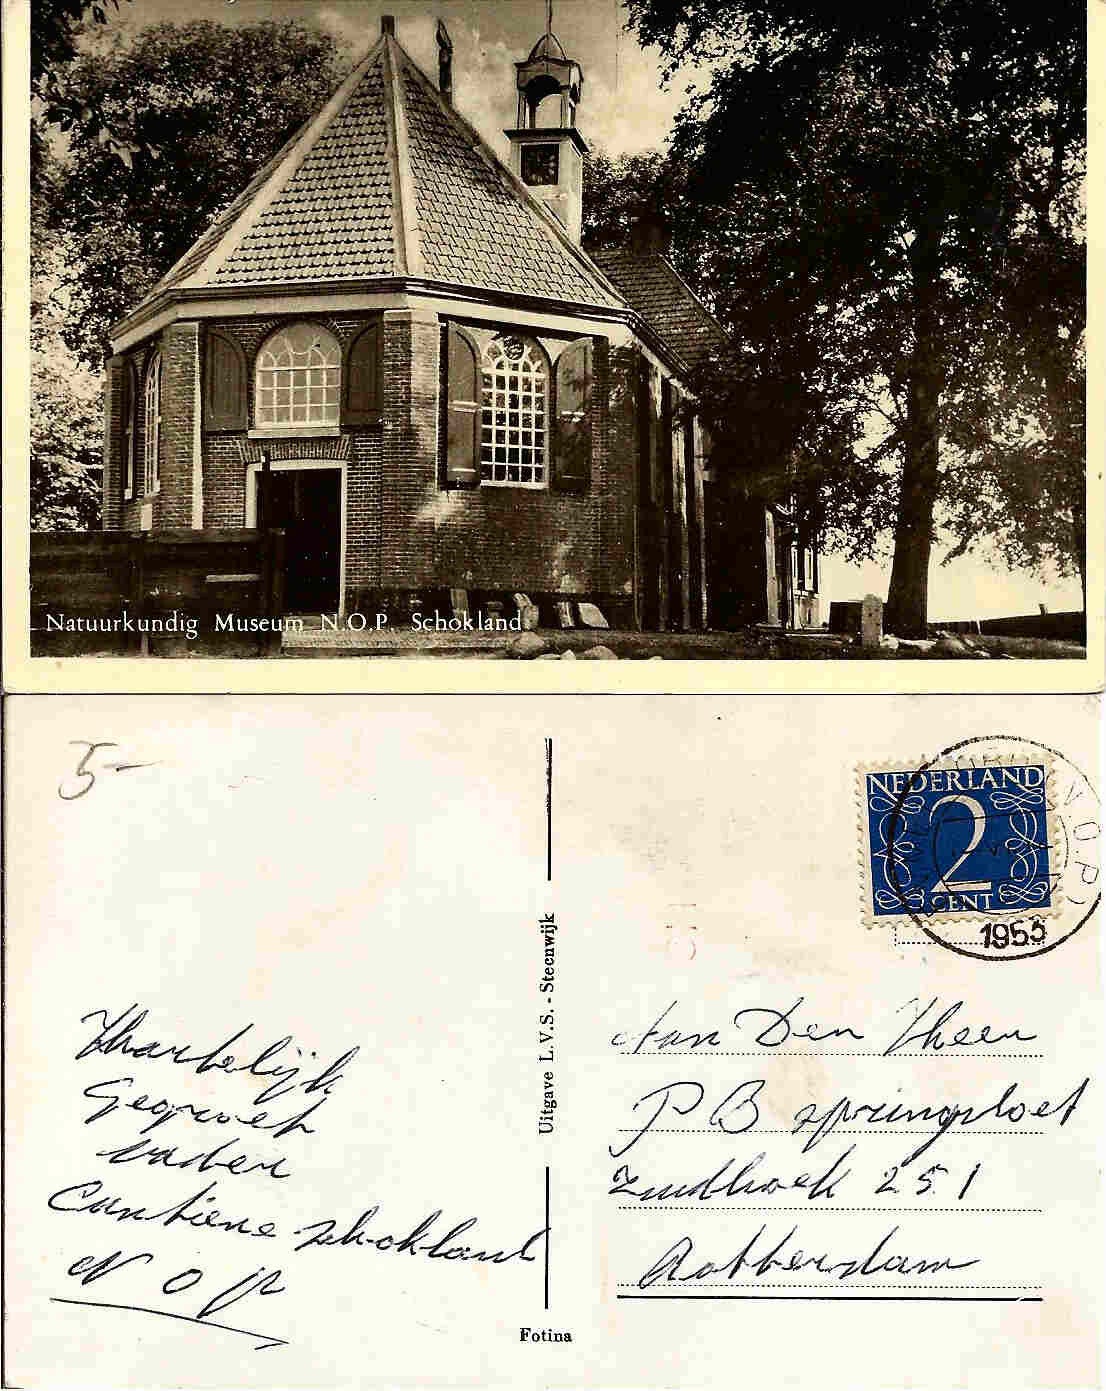 Natuurkundig Museum N.O.P. Schokland
5-
NEDERLAND
2
CENT
N.O.P.)
1953
Hartelijk
Gegroet
vader
Cantiene Schokland
N O P
Uitgave L.V.S. - Steenwijk
Fotina
Aan Den Heer
P B Springvloet
Zuidhoek 251
Rotterdam